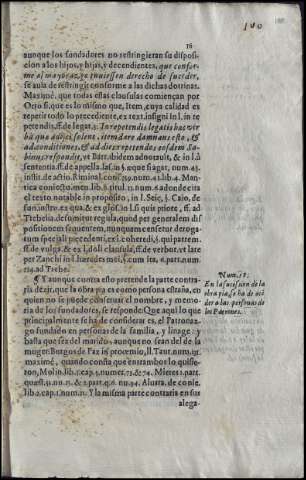 100
16
aunque los fundadores no restringieran su disposi-
cion a los hijos, y hijas, y decendientes, que confor-
me al mayorazgo tuuiessen derecho de suceder,
se auia de restringir conforme a las dichas dotrinas.
Maximè, que todas estas clausulas comiençan por
Otro si. que es lo mismo que, Item, cuya calidad es
repetir todo lo precedente, ex text. insigni in l. in re-
petendis, ff. de legat. 3. In repetendis legatis hæc ver-
ba quæ adijci solent, item dare damnas esto, &
ad conditiones, & ad dies repetendas eosdem Sa-
binus respondit, vt Bart. ibidem adnotauit, & in l. 2
sententia ff. de appella.
instit. de actio. Riminal. consi. 539. num. 41. lib. 4. Men-
ticaconiecto
el texto notable in proposito, in l. Stic. §. Caio, de
& es glos. in l. si quis priore, ff. ad
Trebelia. desumitur regula, quod per generalem dis-
positionem sequentem, nunquam censetur deroga-
tum speciali precedenti, ex l. coheredi, §. qui patrem.
ff. de vulga. & ex l. doli clausula, ff. de verbor. vt late
per Zanchi in l. heredes mei, §. cum ita, 6. part. num.
124. ad Trebel.
¶ Y aunque cuenta esto pretende la parte contra-
ria dezir, que la obra pia es como persona estraña, en
quien no se puede conseruar el nombre, y memo-
ria de los fundadores, se responde. Que aqui lo que
principalmente se ha de considerar es, el Patronaz-
go fundado en personas de la familia, y linage: y
basta que sea del marido, aunque no sean del de la
muger. Burgos de Paz in prooemio, ll. Taur. num. 37.
maximè, quando consta que entrambos lo quisie-
ron, Molin. lib. 1. cap. 5. numer. 73. & 74. Mieres 1. part.
quæst. 51. num. 15. & 2. part. q. 6. nu. 94. Aluara. de conie.
lib. 2. cap. 1. num. 21. Y la misma parte contraria en sus
alega-
Num. 15.
En la sucession de la
obra pia, se ha de atē-
der a las personas de
los Patrones.